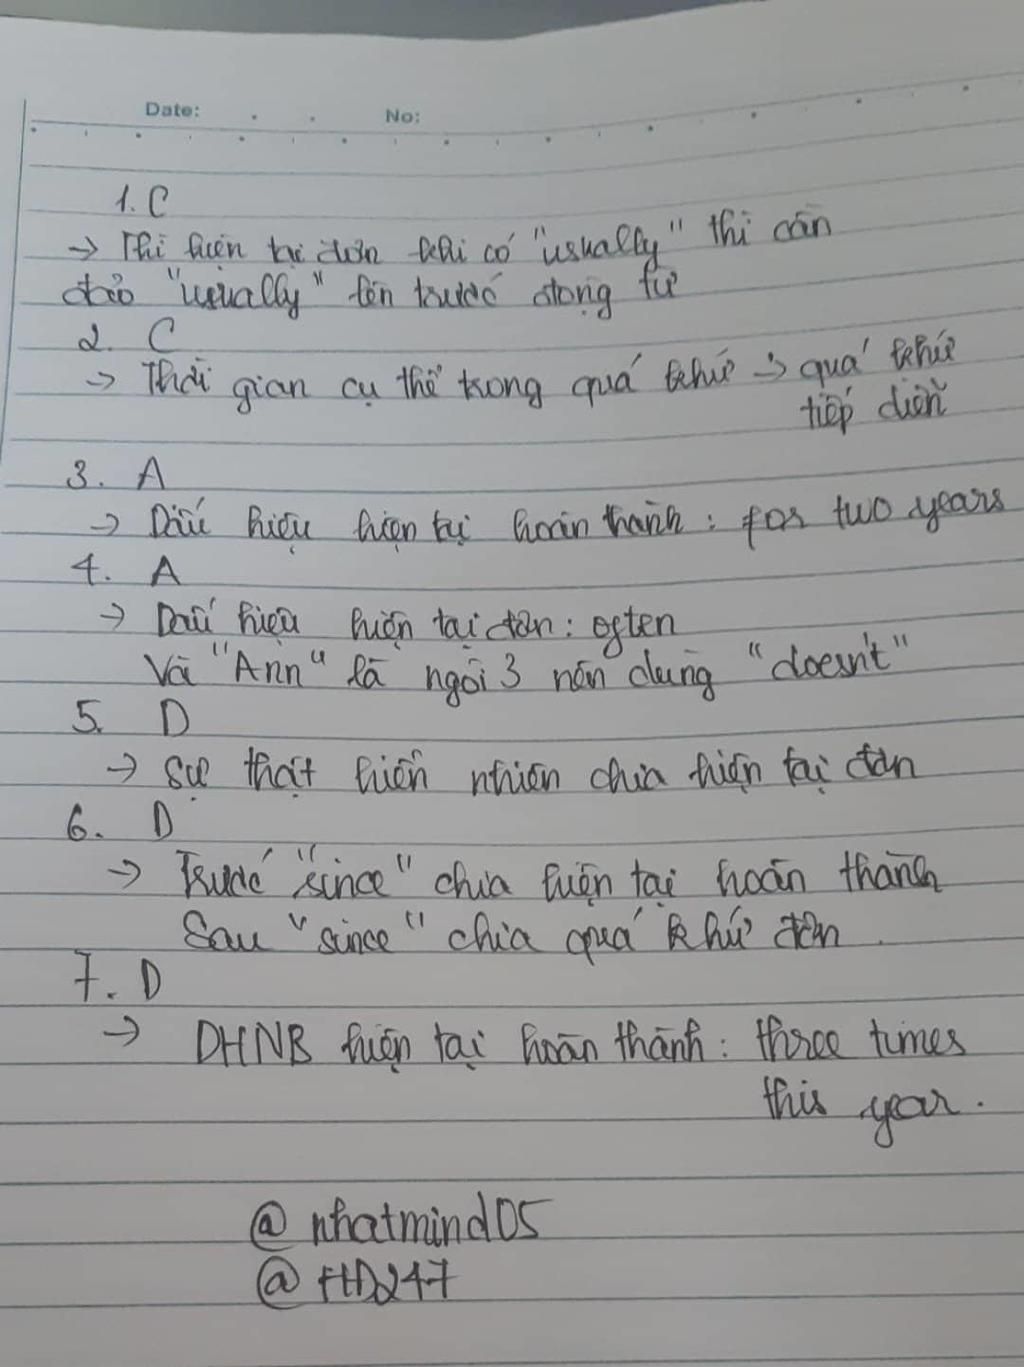 Date:
No:
1. C
→ Thì hiện tại đơn khi có "usually" thì cần
đảo "usually" lên trước động từ
2. C
→ Thời gian cụ thể trong quá khứ → quá khứ
tiếp diễn
3. A
→ Dấu hiệu hiện tại hoàn thành : for two years
4. A
→ Dấu hiệu hiện tại đơn : often
Và "Ann" là ngôi 3 nên dùng "doesn't"
5. D
→ Sự thật hiển nhiên chia hiện tại đơn
6. D
→ Trước "since" chia hiện tại hoàn thành
Sau "since" chia quá khứ đơn.
7. D
→ DHNB hiện tại hoàn thành : three times
this year.
@ nhatmind05